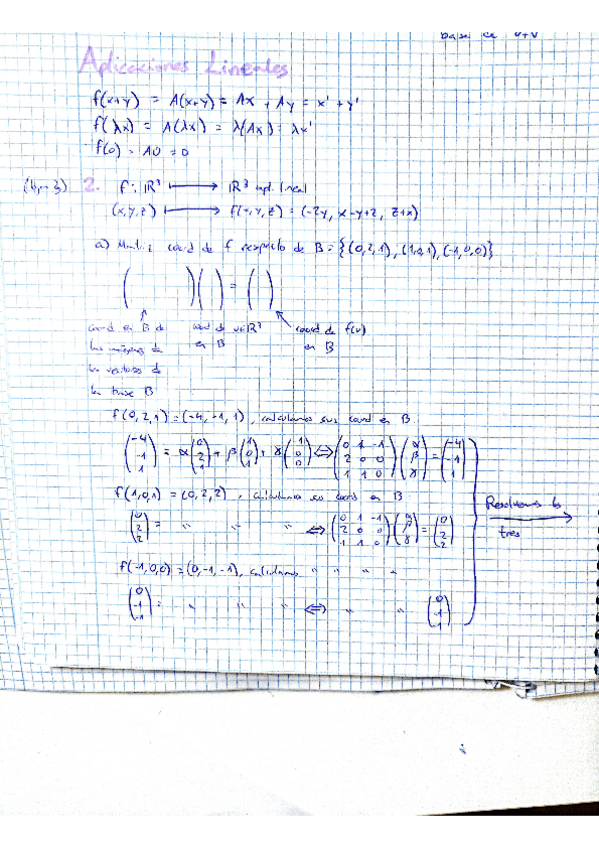 base de U+V
Aplicaciones Lineales
f(x+y) = A(x+y) = Ax + Ay = x' + y'
f(λx) = A(λx) = λ(Ax) = λx'
f(0) = A0 = 0
2. f: ℝ³ ⟼ ℝ³ apl. lineal
(x,y,z) ⟼ f(x,y,z) = (-2y, x-y+z, z+x)
a) Matriz coord de f respecto de B = {(0,2,1), (1,0,1), (-1,0,0)}
( ) ( ) = ( )
coord en B de las imágenes de los vectores de la base B
coord de v∈ℝ³ en B
coord de f(v) en B
f(0,2,1) = (-4,-1,1), calculamos sus coord en B
(-4 -1 1) = α(0 2 1) + β(1 0 1) + γ(-1 0 0) ⟺ (0 1 -1 2 0 0 1 1 0) (α β γ) = (-4 -1 1)
f(1,0,1) = (0,2,2), calculamos su coord en B
(0 2 2) = " " " ⟺ (0 1 -1 2 0 0 1 1 0) (α β γ) = (0 2 2)
Resolvemos los tres
f(-1,0,0) = (0,-1,-1), calculamos " " " "
(0 -1 -1) = " " " ⟺ " " (0 -1 -1)